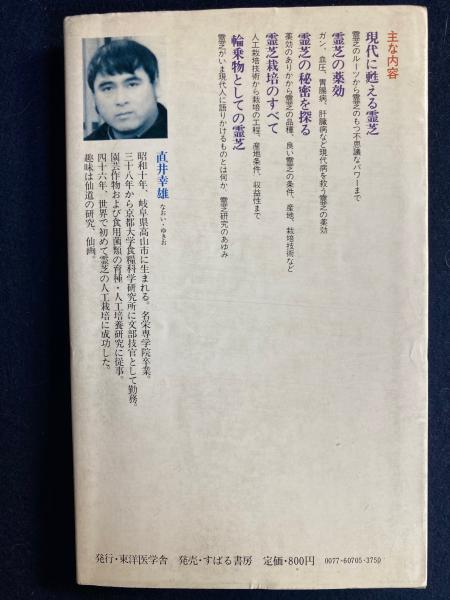 主な内容
現代に甦える霊芝
霊芝のルーツから霊芝のもつ不思議なパワーまで
霊芝の薬効
ガン、血圧、胃腸病、肝臓病など現代病を救う霊芝の薬効
霊芝の秘密を探る
薬効のありかから霊芝の品種、良い霊芝の条件、産地、栽培技術など
霊芝栽培のすべて
人工栽培技術から栽培の工程、産地条件、収益性まで
輪乗物としての霊芝
霊芝がいま現代人に語りかけるものとは何か、霊芝研究のあゆみ
直井幸雄 なおい・ゆきお
昭和十年、岐阜県高山市に生まれる。名栄専学院卒業。
三十八年から京都大学食糧科学研究所に文部技官として勤務。
園芸作物および食用菌類の育種・人工培養研究に従事。
四十六年、世界で初めて霊芝の人工栽培に成功した。
趣味は仙道の研究、仙画。
発行・東洋医学舎 発売・すばる書房 定価・800円 0077-60705-3750